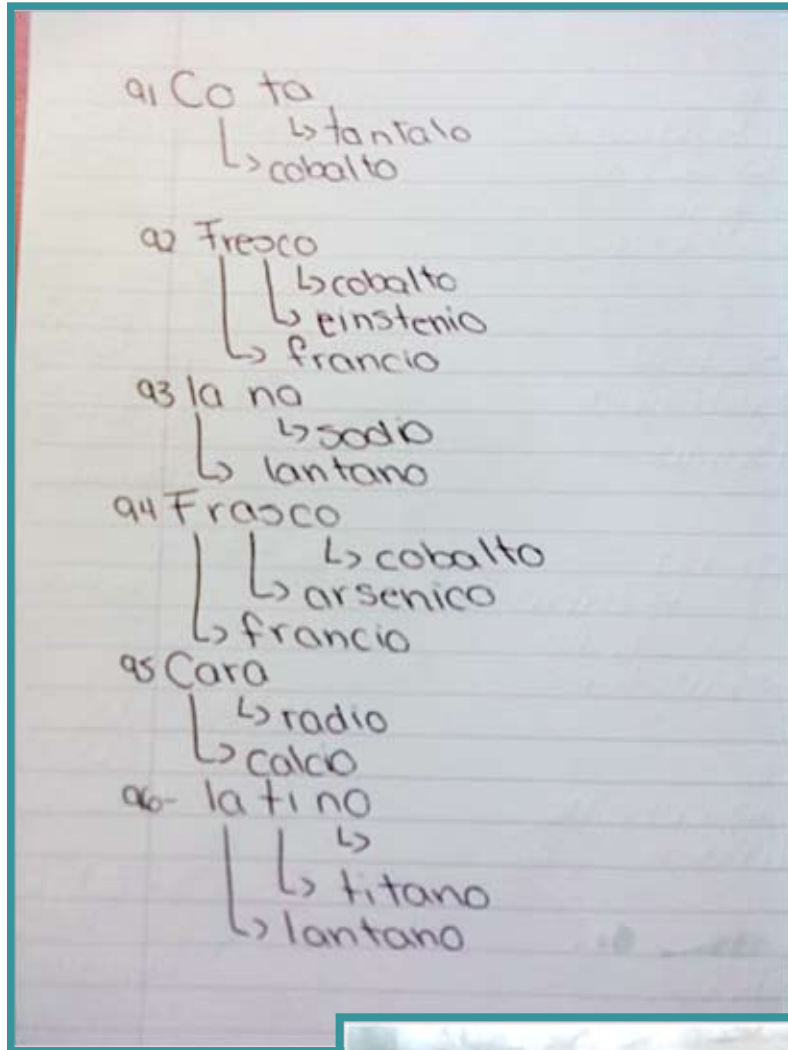 91 Co ta
↳ tantalo
↳ cobalto
92 Fresco
↳ cobalto
↳ einstenio
↳ francio
93 la na
↳ sodio
↳ lantano
94 Frasco
↳ cobalto
↳ arsenico
↳ francio
95 Cara
↳ radio
↳ calcio
96- la ti no
↳
↳ titano
↳ lantano